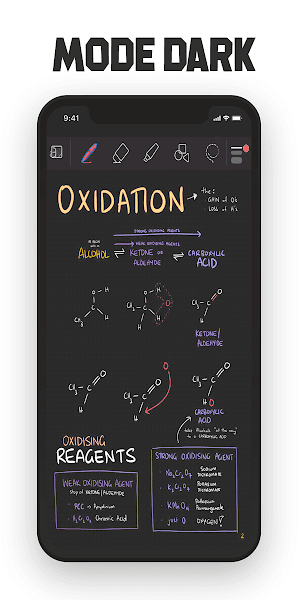 MODE DARK
9:41
OXIDATION
the:
GAIN of O's
Loss of H's
STRONG OXIDISING AGENTS
WEAK OXIDISING AGENTS
ALCOHOL
KETONE OR
ALDEHYDE
CARBOXYLIC
ACID
CH₃
C
O
H
H
CH₃
C
O
H
H
O
CH₃
C
O
KETONE/
ALDEHYDE
CH₃
C
O
H
CH₃
C
O
H
O
CH₃
C
O
O
H
CARBOXYLIC
ACID
takes Alcohols "all the way"
to a CARBOXYLIC ACID
OXIDISING
REAGENTS
WEAK OXIDISING AGENT
Stop at KETONE/ALDEHYDE
PCC in
H₂CrO₄ Chromic Acid
STRONG OXIDISING AGENT
Na₂Cr₂O₇ Sodium
Dichromate
K₂Cr₂O₇ Potassium
Dichromate
KMnO₄ Potassium
Permanganate
just O OXYGEN!
2